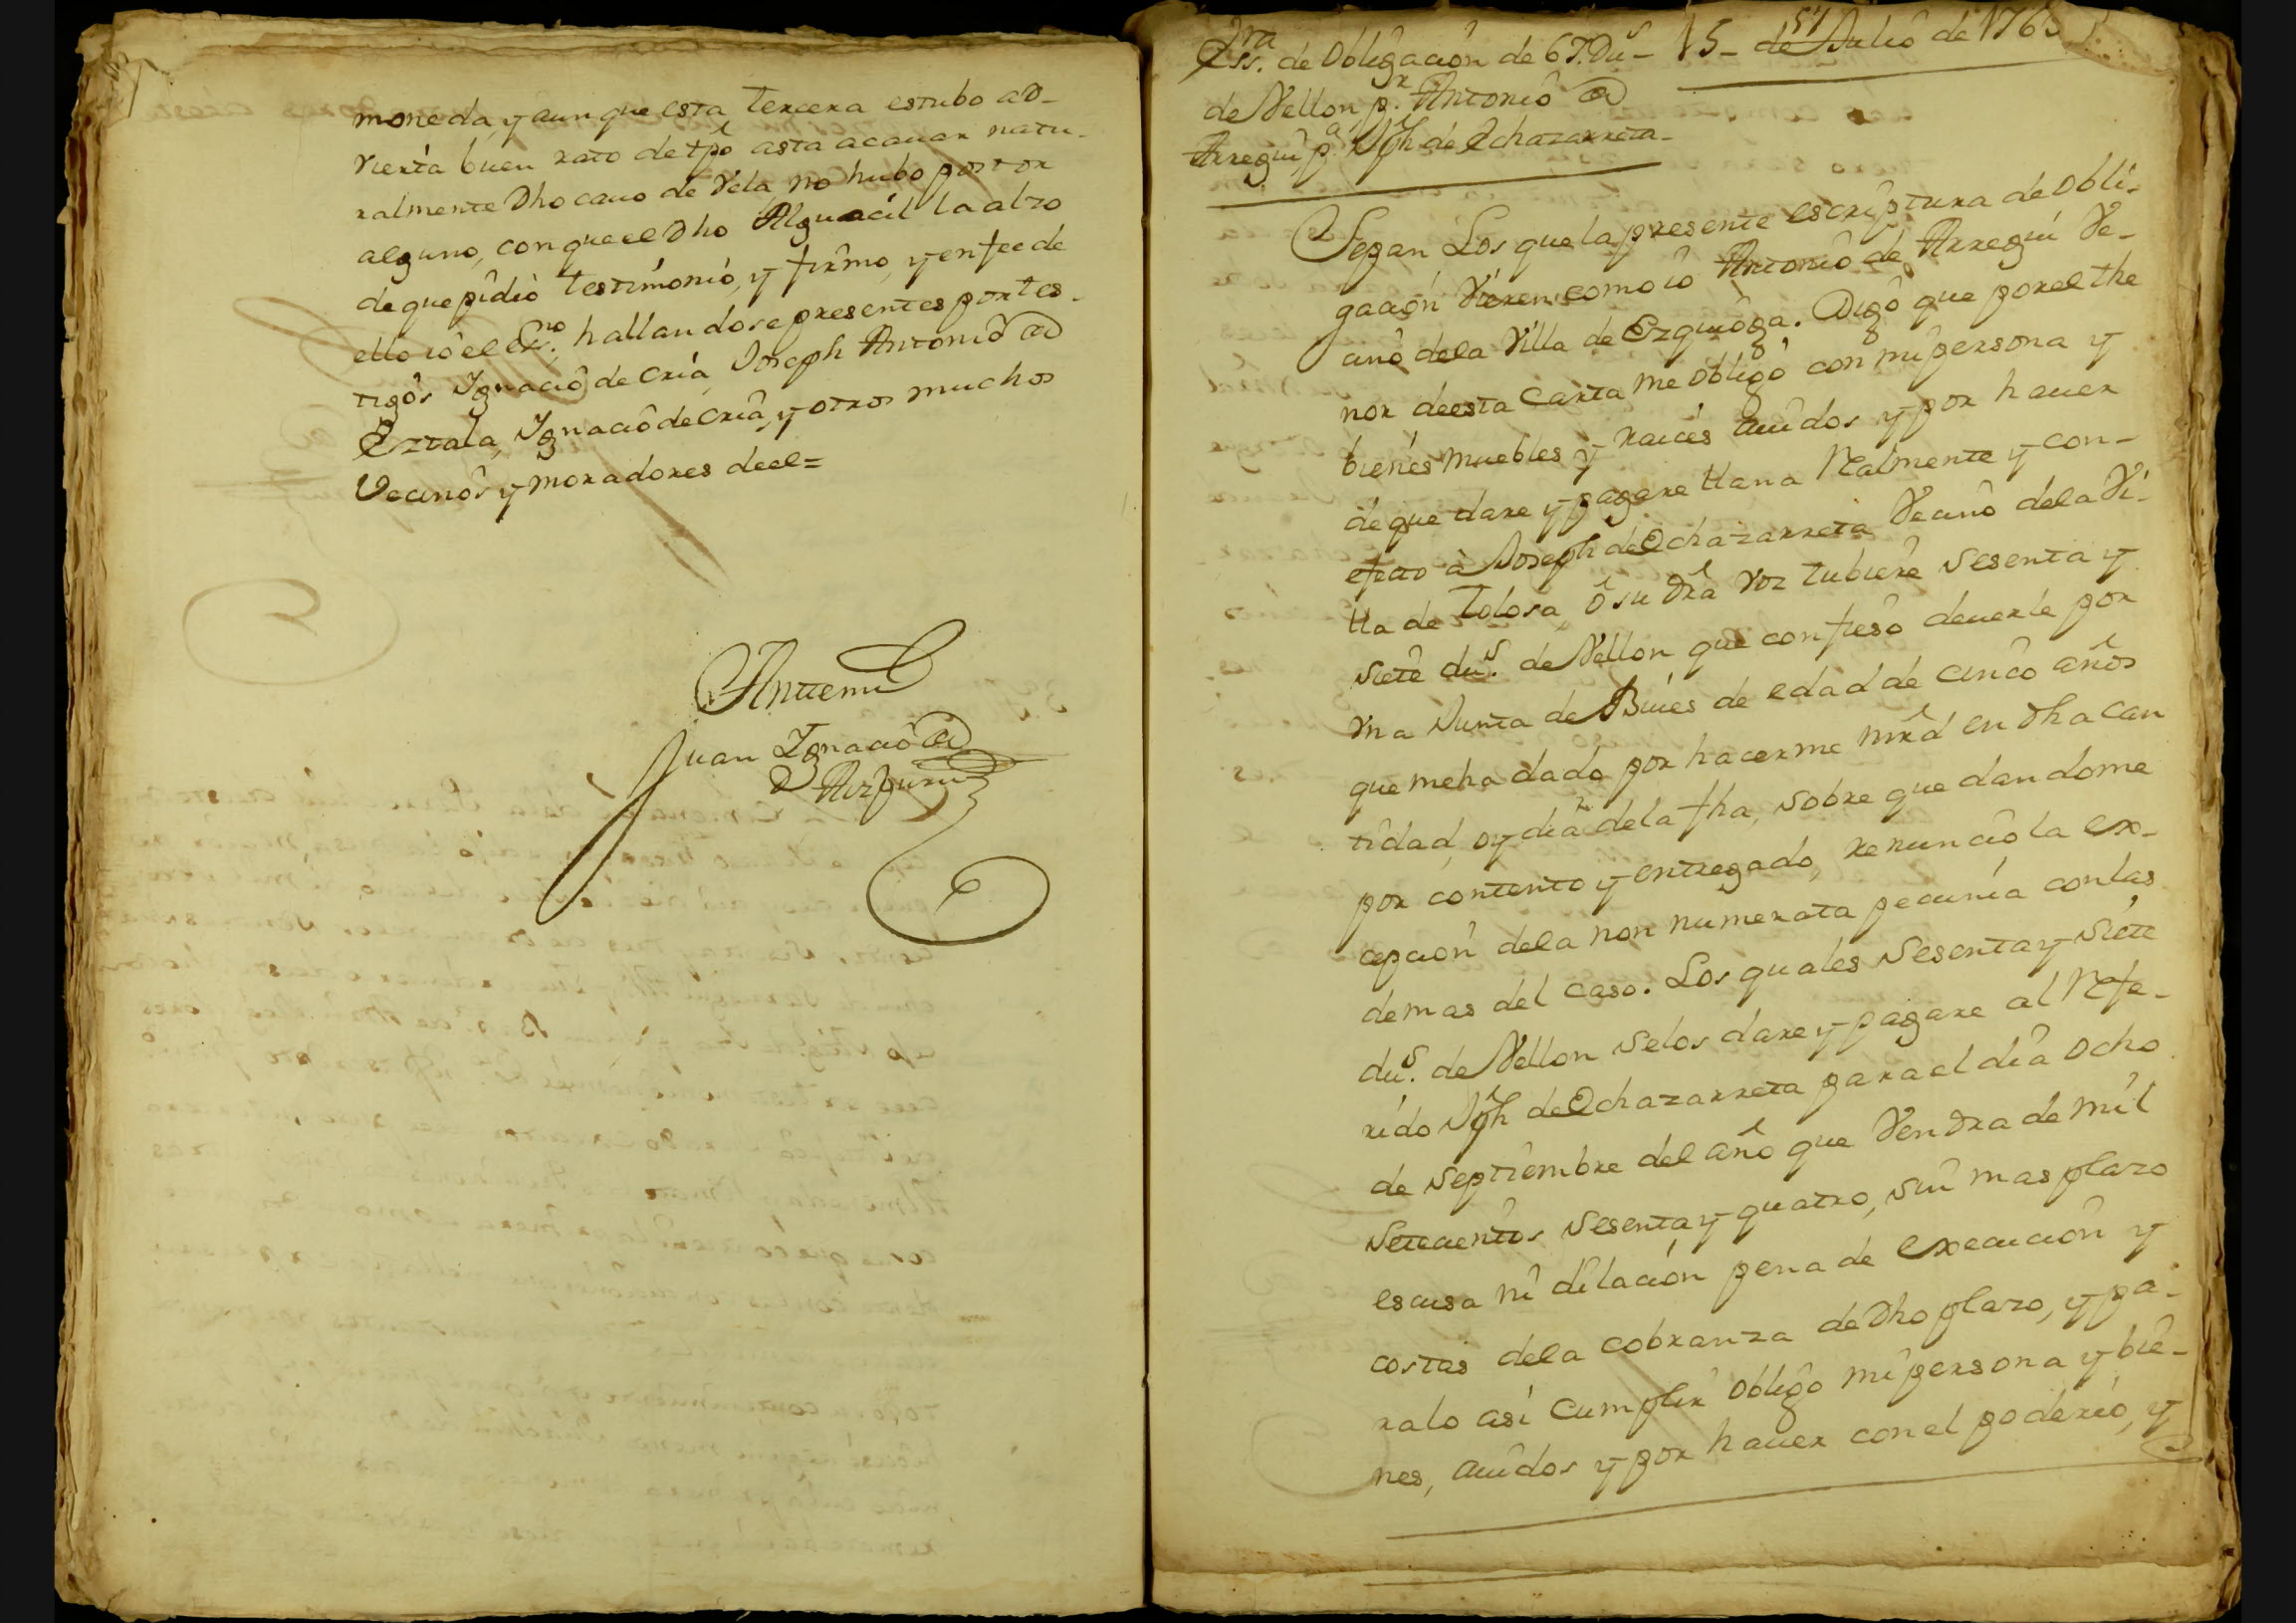 moneda, y aunque esta tercera estubo ad-
vierta buen rato de tpô asta acauar natu-
ralmente Dho cauo de Vela no hubo postor
alguno, con que el Dho Alguacil la alzo
de que pidiò testimonio, y firmo, y en fee de
ello iô el Essno. hallandose presentes por tes-
tigos Ignacio de Cria, Joseph Antonio de
Eztala, Ignacio de Cria, y otros muchos
Vecinos y moradores de el=
Antemi
Juan Ignacio de
Aizpuru
51
Essra. de Obligacion de 67. Dus- 15- de Julio de 1763
de Vellon, pr. Antonio de
Arregui, pa. Jph de Ochazarreta-
Sepan Los que la presente escriptura de obli-
gacion Vieren como iô Antonio de Arregui Ve-
cino de la Villa de Ezquioga. Digo que por el the
nor de esta Carta me obligo con mi persona y
bienes muebles y raices auidos y por hauer
de que dare y pagare llana Realmente y con-
efecto à Joseph de Ochazarreta Vecino de la Vi-
lla de Tolosa, ô su dra voz tubiere sesenta y
siete dus. de Vellon que confieso deuerle por
vna Junta de Bueies de edad de cinco años
que me ha dado por hacerme mrd en Dha can
tidad, oy dia de la fha, sobre que dandome
por contento y entregado, renuncio la ex-
cepcion de la non numerata pecunia con las
demas del caso. Los quales sesenta y siete
dus. de Vellon se los dare y pagare al Refe-
rido Jph de Ochazarreta para el dia ocho
de septiembre del año que Vendra de mil
setecientos sesenta y quatro, sin mas plazo
escusa ni dilacion pena de execucion y
costas de la cobranza de Dho plazo, y pa-
ralo asi cumplir obligo mi persona y bie-
nes, auidos y por hauer con el poderio, y